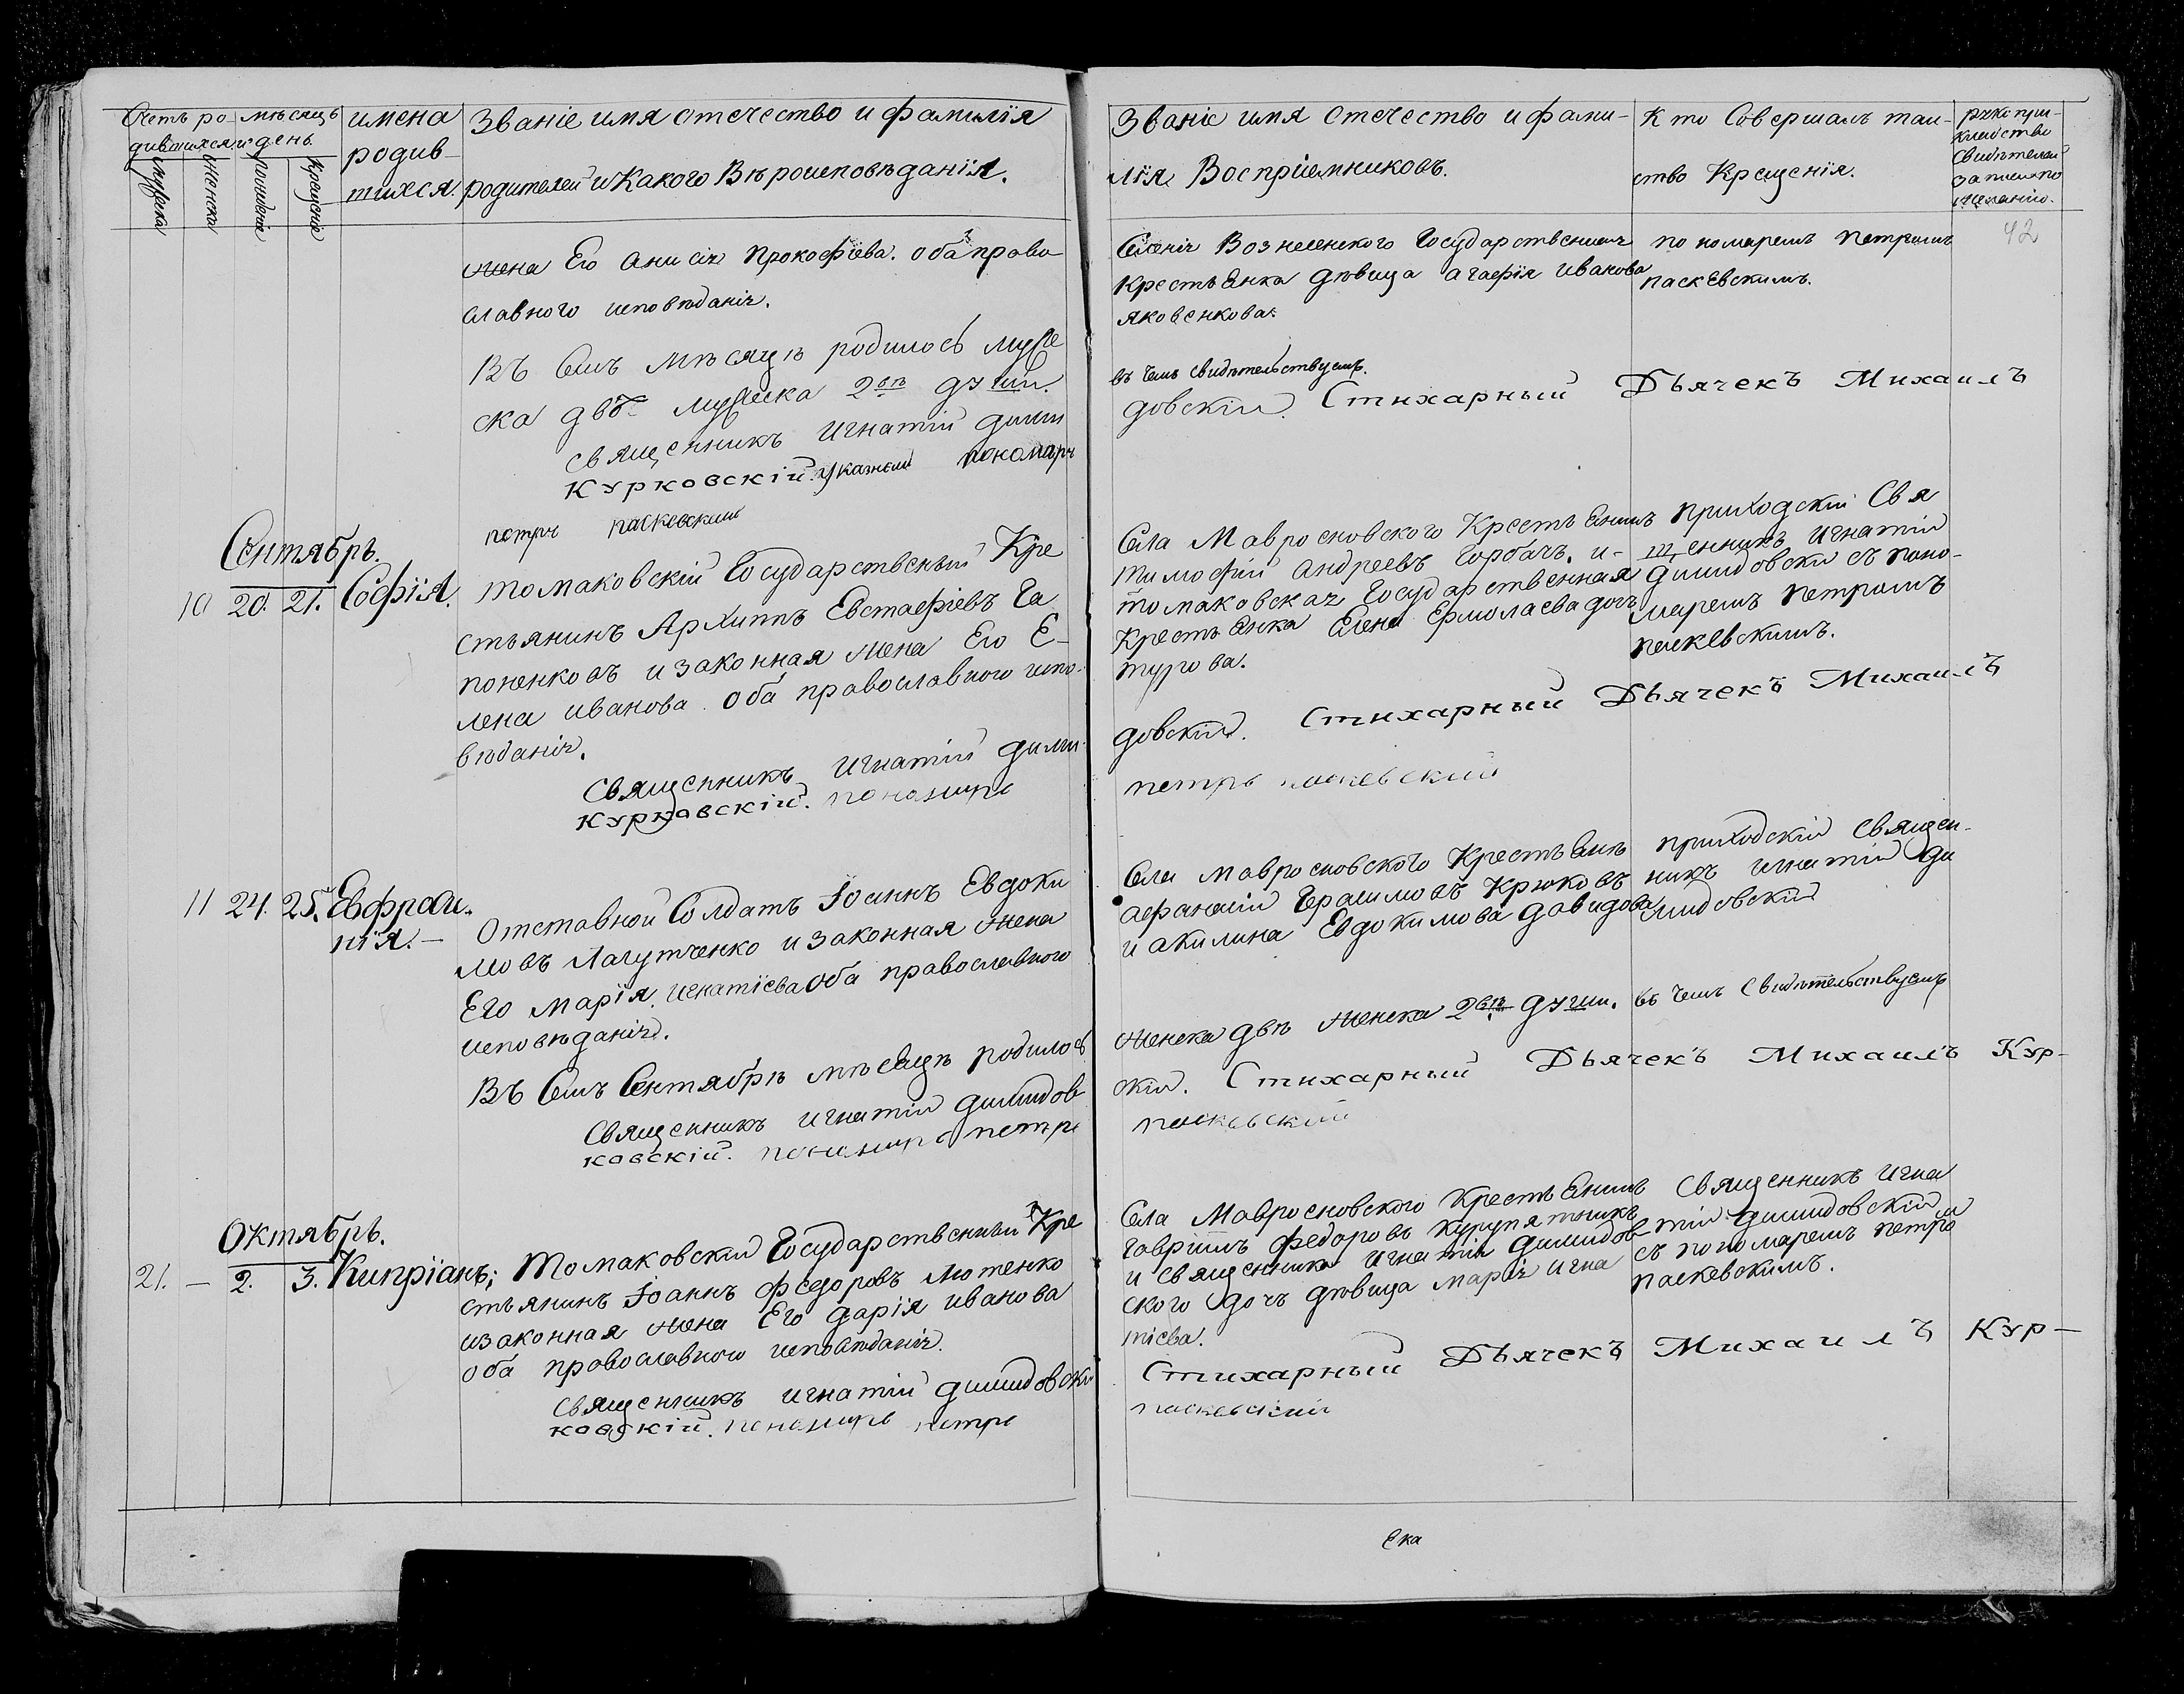 Счетъ ро-
дившихся
мѣсяцъ
и день
мужеска
женска
рожденія
крещенія
имена
родив
шихся.
Званіе имя отечество и фамилія
родителей и Какого Вѣроисповѣданія.
жена Его Анисія Прокофіева. оба право
славного исповѣданія.
Въ Семъ Мѣсяцѣ родилось муже
ска двѣ мужеска 2вѣ души.
Священникъ Игнатій Дими
Курковскій. Указный пономарь
петръ паскевскій
Сентябрь.
10 20. 21. Софія.
Томаковскій Государственный Кре
стьянинъ Архиппъ Евстафіевъ Га
поненковъ и законная жена Его Е-
лена Иванова. оба православного испо-
вѣданія.
Священникъ Игнатій Дими-
Курковскій. пономарь
11 24. 25. Евфроси-
нія.
Отставной Солдатъ Іоаннъ Евдоки
мовъ Лагутченко и законная жена
Его Марія Игнатіева оба православного
исповѣданія.
Въ Семъ Сентябрѣ мѣсяцѣ родилось
Священникъ Игнатій Димидов
ковскій. пономарь петръ
Октябрь.
21. — 2. 3. Кипріанъ;
Томаковскій Государственный Кре
стьянинъ Іоаннъ Федоровъ Лютенко
и законная жена Его Дарія Иванова
оба православного исповѣданія.
Священникъ Игнатій Димидовскій
ковскій. пономарь петръ
Званіе имя Отечество и фами-
лія Воспріемниковъ.
Кто Совершалъ таи-
ство Крещенія.
рукопри-
кладство
Свидѣтелей
записи по
желанію.
42
Селенія Вознесенского Государственная
Крестьянка дѣвица Агафія Иванова
Яковенкова.
пономаремъ Петромъ
паскевскимъ.
въ чемъ свидѣтельствуемъ.
довскій. Стихарный Дьячекъ Михаилъ
Села Мавросновского Крестьянинъ
Тимофей Андреевъ Горбачъ. и-
томаковская Государственная
Крестьянка Елена Ермолаева дочь
турова.
приходскій Свя
щенникъ Игнатій
Димидовскій съ поно-
маремъ Петромъ
паскевскимъ.
довскій. Стихарный Дьячекъ Михаилъ
петръ паскевскій
Села Мавросновского Крестьяне
Афанасій Герасимовъ Крюковъ
и Акилина Евдокимова Давидова
приходскій Священ-
никъ Игнатій Ди
мидовскій
женска двѣ женска 2вѣ души. въ чемъ Свидѣтельствуемъ
скій. Стихарный Дьячекъ Михаилъ Кур-
паскевскій
Села Мавросновского Крестьянинъ
Гавріилъ Федоровъ Курупятникъ
и Священника Игнатія Димидов-
ского дочь дѣвица Марія Игна
тіева.
Священникъ Игна
тій Димидовскій
съ пономаремъ Петромъ
паскевскимъ.
Стихарный Дьячекъ Михаилъ Кур-
паскевскій
Ека